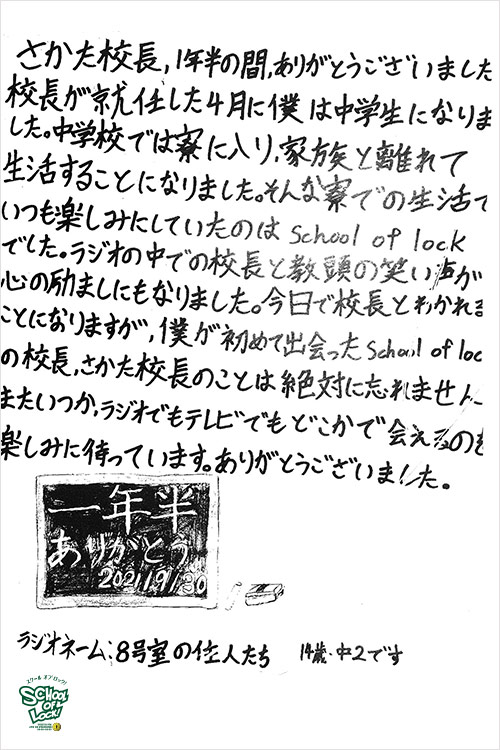 さかた校長,1年半の間,ありがとうございました
校長が就任した4月に僕は中学生になりま
した。中学校では寮に入り,家族と離れて
生活することになりました。そんな寮での生活で
いつも楽しみにしていたのは School of lock
でした。ラジオの中での校長と教頭の笑い声が
心の励ましにもなりました。今日で校長とわかれる
ことになりますが,僕が初めて出会った School of loc
の校長,さかた校長のことは絶対に忘れません
またいつか,ラジオでもテレビでもどこかで会えるのを
楽しみに待っています。ありがとうございました。
一年半
ありがとう
2021/9/30
ラジオネーム:8号室の住人たち 14歳・中2です
スクール オブ ロック!
SCHOOL
OF
LOCK!